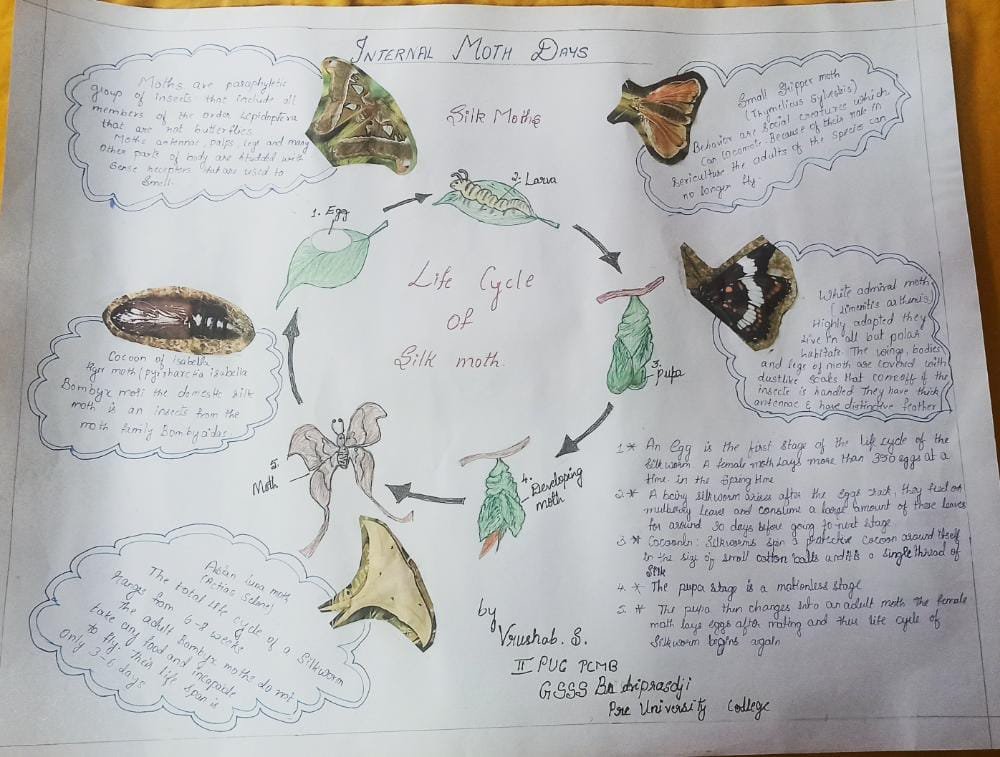 INTERNAL MOTH DAYS
Moths are paraphyletic
group of insects that include all
members of the order Lepidoptera
that are not butterflies
Moths antennae, palps, legs and many
Other parts of body are studded with
Sense receptors that are used to
Smell.
Silk Moths
Small Skipper moth
(Thymelicus Sylvestris)
Behavior are social creatures which
can locomote. Because of their role in
Sericulture the adults of the species can
no longer fly.
1. Egg
2. Larva
3. Pupa
4. Developing
moth
5. Moth
Life Cycle
Of
Silk moth.
Cocoon of Isabella
moth
Bombyx mori the domestic silk
moth is an insects from the
moth family
White admiral moth
Highly adapted they
live in all but polar
habitate. The wings, bodies
and legs of moth are covered with
dustlike scales that come off if the
insects is handled They have thick
antennae & have distinctive feather
1* An Egg is the first stage of the life cycle of the
Silkworm A female moth lays more than 350 eggs at a
time in the Spring time
2* A baby silkworm arises after the eggs crack, they feed on
mulberry leaves and consume a large amount of these leaves
for around 30 days before going to next stage
3* Silkworms spin a protective cocoon around itself
in the size of small cotton balls and it is a single thread of
Silk
4* The pupa stage is a motionless stage
5* The pupa then changes into an adult moth the female
moth lays eggs after mating and thus life cycle of
Silkworm begins again
Asian luna moth
(Actias Selene)
The total life cycle of a Silkworm
ranges from 6-8 weeks
the adult Bombyx moths do not
take any food and incapable
to fly. their life span is
Only 3-6 days
by
Vrushab. S.
II PUC PCMB
GSSS
Pre University College